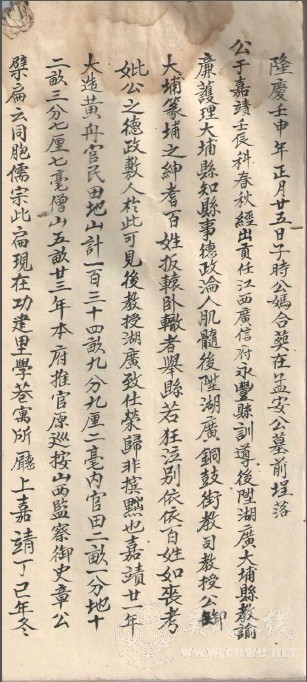 隆慶壬申年正月廿五日子時公媽合葵在孟安公墓前埕落
公于嘉靖壬辰科春秋經出貢任江西廣信府永豐縣訓導後陞湖廣大埔縣教諭
廉護理大埔縣知縣事德政淪人肌髓後陞湖廣銅鼓街教司教授公卸
大埔篆埔之紳耆百姓扳轅卧轍者舉縣若狂泣别依依百姓如喪考
妣公之德政數人於此可見後教授湖廣致仕榮歸非摸黙也嘉靖廿一年
大造黄册官民田地山計一百三十四畝九分九厘二毫内官田二畝一分地十
二畝三分七厘七毫僧山五畝廿三年本府推官原巡按山西監察御史章公
檗扁云同胞儒宗此扁現在功建里學巷寓所廳上嘉靖丁巳年冬